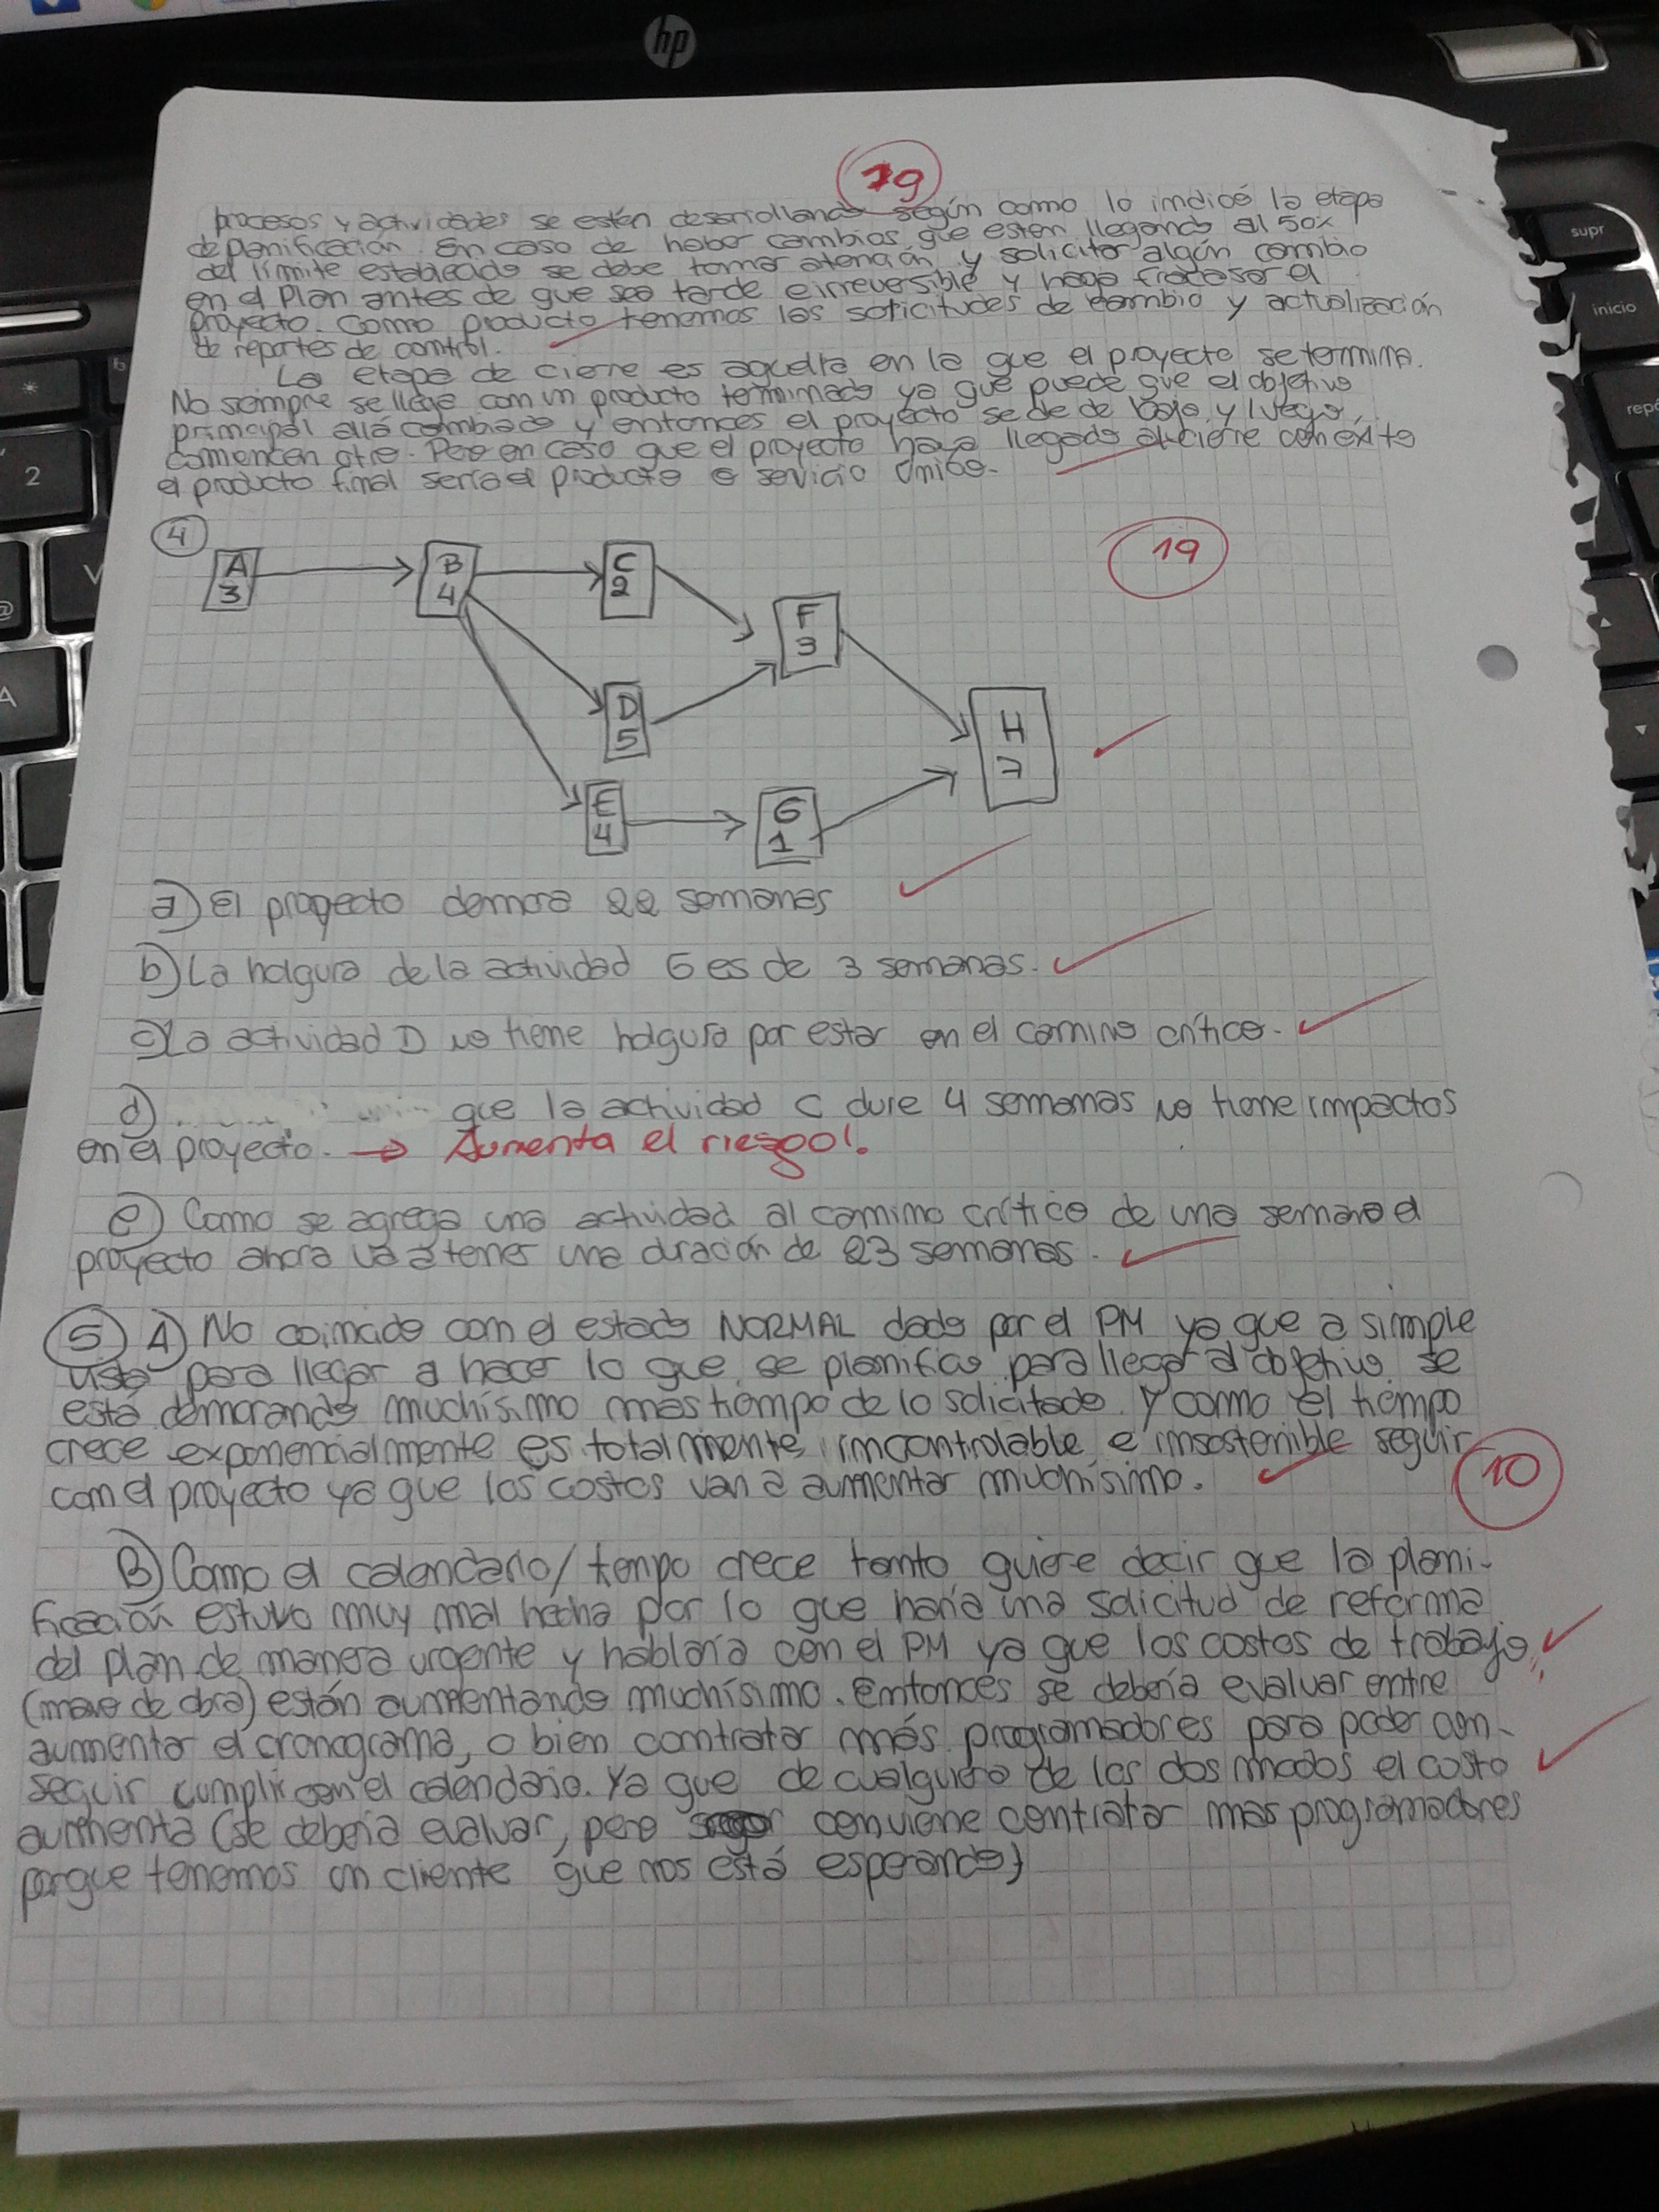 hp
supr
inicio
repá
2
A
19
procesos y actividades se estén desarrollando según como lo indicó la etapa
de planificación. En caso de haber cambios que esten llegando al 50%
del límite establecido se debe tomar atención y solicitar algún cambio
en el Plan antes de que sea tarde e irreversible y haga fracasar el
proyecto. Como producto tenemos las solicitudes de cambio y actualización
de reportes de control.
La etapa de cierre es aquella en la que el proyecto se termina.
No siempre se llega con un producto terminado ya que puede que el objetivo
principal alla cambiado y entonces el proyecto se de de baja y luego
comiencen otro. Pero en caso que el proyecto haya llegado al cierre con éxito
el producto final sería el producto o servicio único.
4
19
A 3
B 4
C 2
F 3
D 5
H 7
E 4
G 1
a) El proyecto demora 22 semanas
b) La holgura de la actividad G es de 3 semanas.
c) La actividad D no tiene holgura por estar en el camino crítico.
d) que la actividad C dure 4 semanas no tiene impactos
en el proyecto. → Aumenta el riesgo!.
e) Como se agrega una actividad al camino crítico de una semana el
proyecto ahora va a tener una duración de 23 semanas.
5 A) No coincido con el estado NORMAL dado por el PM ya que a simple
vista para llegar a hacer lo que se planifico para llegar al objetivo se
está demorando muchísimo mas tiempo de lo solicitado. Y como el tiempo
crece exponencialmente es totalmente incontrolable e insostenible seguir
con el proyecto ya que los costos van a aumentar muchísimo.
10
B) Como el calendario/tiempo crece tanto quiere decir que la plani-
ficación estuvo muy mal hecha por lo que haría una solicitud de reforma
del plan de manera urgente y hablaría con el PM ya que los costos de trabajo
(mano de obra) están aumentando muchísimo. Entonces se debería evaluar entre
aumentar el cronograma, o bien contratar más programadores para poder con-
seguir cumplir con el calendario. Ya que de cualquiera de los dos modos el costo
aumenta (se debería evaluar, pero conviene contratar mas programadores
porque tenemos un cliente que nos está esperando)